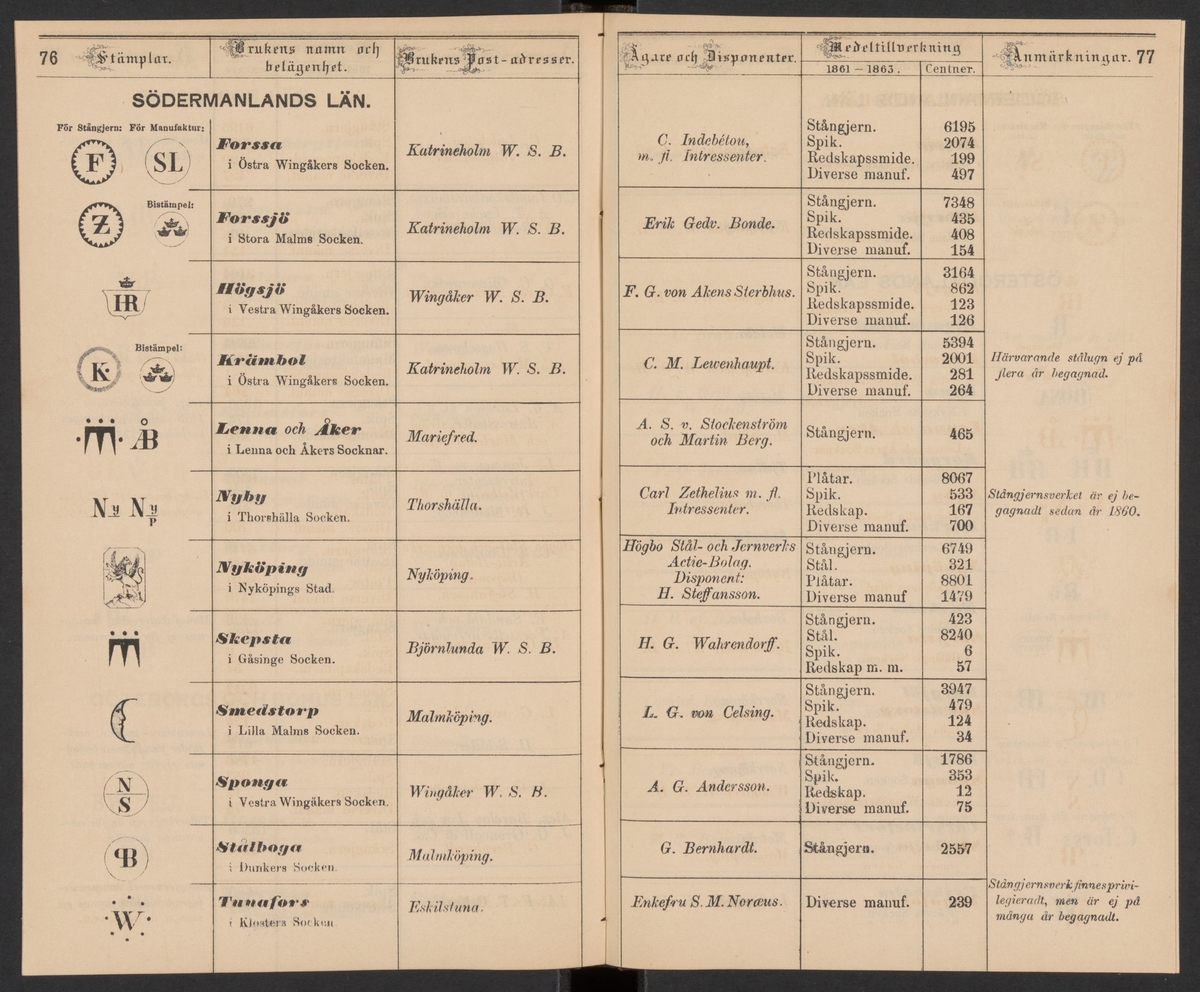 76 Stämplar. Brukens namn och belägenhet. Brukens Post-adresser. Ägare och Disponenter. Medeltillverkning 1861—1863. Centner. Anmärkningar. 77
SÖDERMANLANDS LÄN.
För Stångjern: För Manufaktur:
F SL
Forssa
i Östra Wingåkers Socken.
Katrineholm W. S. B.
C. Indebétou,
m. fl. Intressenter.
Stångjern. 6195
Spik. 2074
Redskapssmide. 199
Diverse manuf. 497
Z Bistämpel:
Forssjö
i Stora Malms Socken.
Katrineholm W. S. B.
Erik Gedv. Bonde.
Stångjern. 7348
Spik. 435
Redskapssmide. 408
Diverse manuf. 154
HR
Högsjö
i Vestra Wingåkers Socken.
Wingåker W. S. B.
F. G. von Akens Sterbhus.
Stångjern. 3164
Spik. 862
Redskapssmide. 123
Diverse manuf. 126
K Bistämpel:
Krämbol
i Östra Wingåkers Socken.
Katrineholm W. S. B.
C. M. Lewenhaupt.
Stångjern. 5394
Spik. 2001
Redskapssmide. 281
Diverse manuf. 264
Härvarande stålugn ej på
flera år begagnad.
ÅB
Lenna och Åker
i Lenna och Åkers Socknar.
Mariefred.
A. S. v. Stockenström
och Martin Berg.
Stångjern. 465
Ny Ny p
Nyby
i Thorshälla Socken.
Thorshälla.
Carl Zethelius m. fl.
Intressenter.
Plåtar. 8067
Spik. 533
Redskap. 167
Diverse manuf. 700
Stångjernsverket är ej be-
gagnadt sedan år 1860.
Nyköping
i Nyköpings Stad.
Nyköping.
Högbo Stål- och Jernverks
Actie-Bolag.
Disponent:
H. Steffansson.
Stångjern. 6749
Stål. 321
Plåtar. 8801
Diverse manuf 1479
Skepsta
i Gåsinge Socken.
Björnlunda W. S. B.
H. G. Wahrendorff.
Stångjern. 423
Stål. 8240
Spik. 6
Redskap m. m. 57
Smedstorp
i Lilla Malms Socken.
Malmköping.
L. G. von Celsing.
Stångjern. 3947
Spik. 479
Redskap. 124
Diverse manuf. 34
N
S
Sponga
i Vestra Wingåkers Socken.
Wingåker W. S. B.
A. G. Andersson.
Stångjern. 1786
Spik. 353
Redskap. 12
Diverse manuf. 75
PB
Stålboga
i Dunkers Socken.
Malmköping.
G. Bernhardt.
Stångjern. 2557
W
Tunafors
i Klosters Socken
Eskilstuna.
Enkefru S. M. Noræus.
Diverse manuf. 239
Stångjernsverk finnes privi-
legieradt, men är ej på
många år begagnadt.